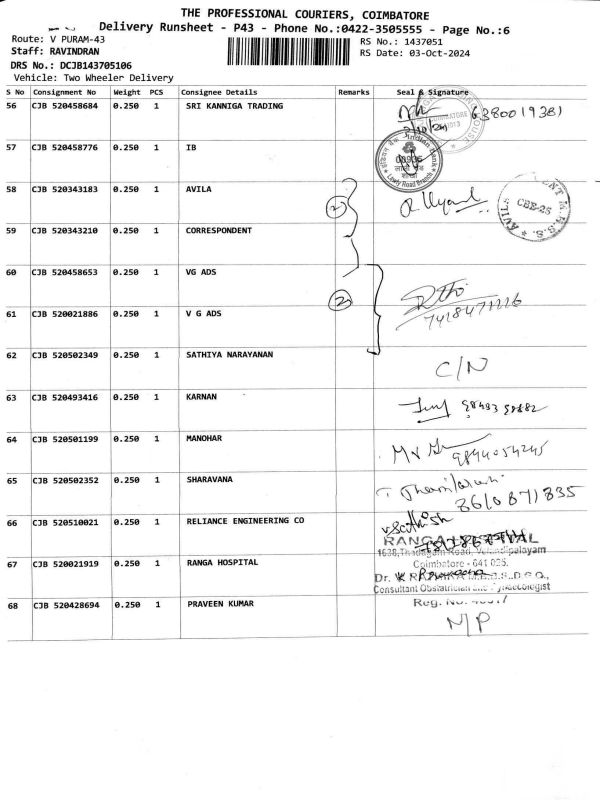 THE PROFESSIONAL COURIERS, COIMBATORE
Delivery Runsheet - P43 - Phone No.:0422-3505555 - Page No.:6
Route: V PURAM-43
RS No.: 1437051
Staff: RAVINDRAN
RS Date: 03-Oct-2024
DRS No.: DCJB143705106
Vehicle: Two Wheeler Delivery
S No Consignment No Weight PCS Consignee Details Remarks Seal & Signature
56 CJB 520458684 0.250 1 SRI KANNIGA TRADING 6380019381
57 CJB 520458776 0.250 1 IB
Indian Bank
Lawly Road Branch
58 CJB 520343183 0.250 1 AVILA
CBE-25
59 CJB 520343210 0.250 1 CORRESPONDENT
60 CJB 520458653 0.250 1 VG ADS
2
61 CJB 520021886 0.250 1 V G ADS
62 CJB 520502349 0.250 1 SATHIYA NARAYANAN
C/N
63 CJB 520493416 0.250 1 KARNAN
64 CJB 520501199 0.250 1 MANOHAR
9894054245
65 CJB 520502352 0.250 1 SHARAVANA
8610871835
66 CJB 520510021 0.250 1 RELIANCE ENGINEERING CO
67 CJB 520021919 0.250 1 RANGA HOSPITAL
1638, Thadagam Road, Velandipalayam
Coimbatore - 641 025.
Consultant Obstatrician and Gynaecologist
68 CJB 520428694 0.250 1 PRAVEEN KUMAR
N/P